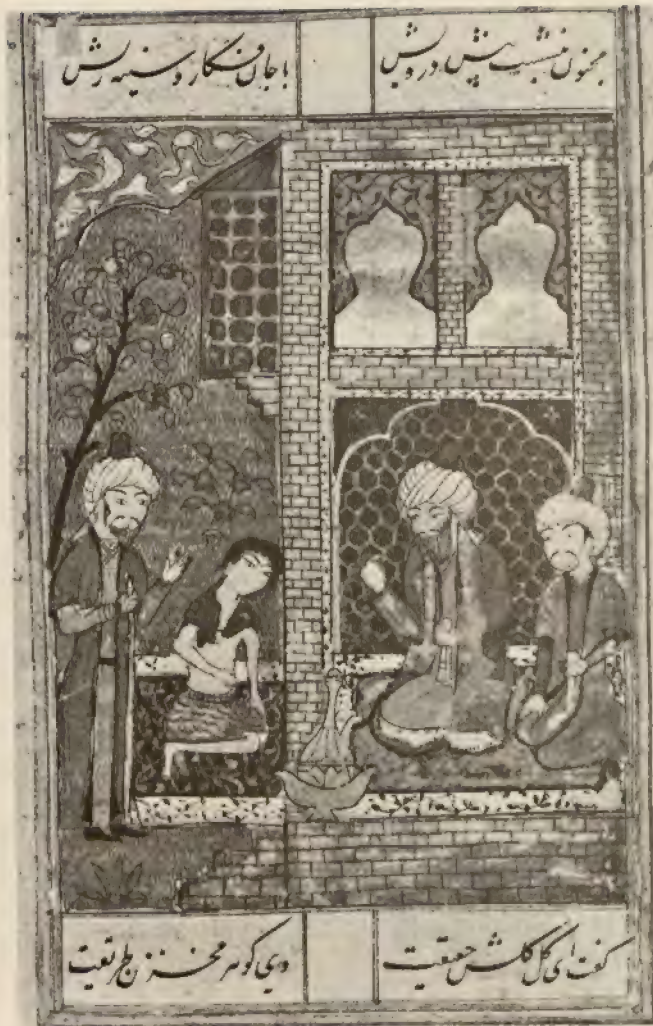 مجنون بنشست پیش درویش
با جان فکار و سینه ریش
گفت ای گل گلشن حقیقت
وی گوهر مخزن طریقت